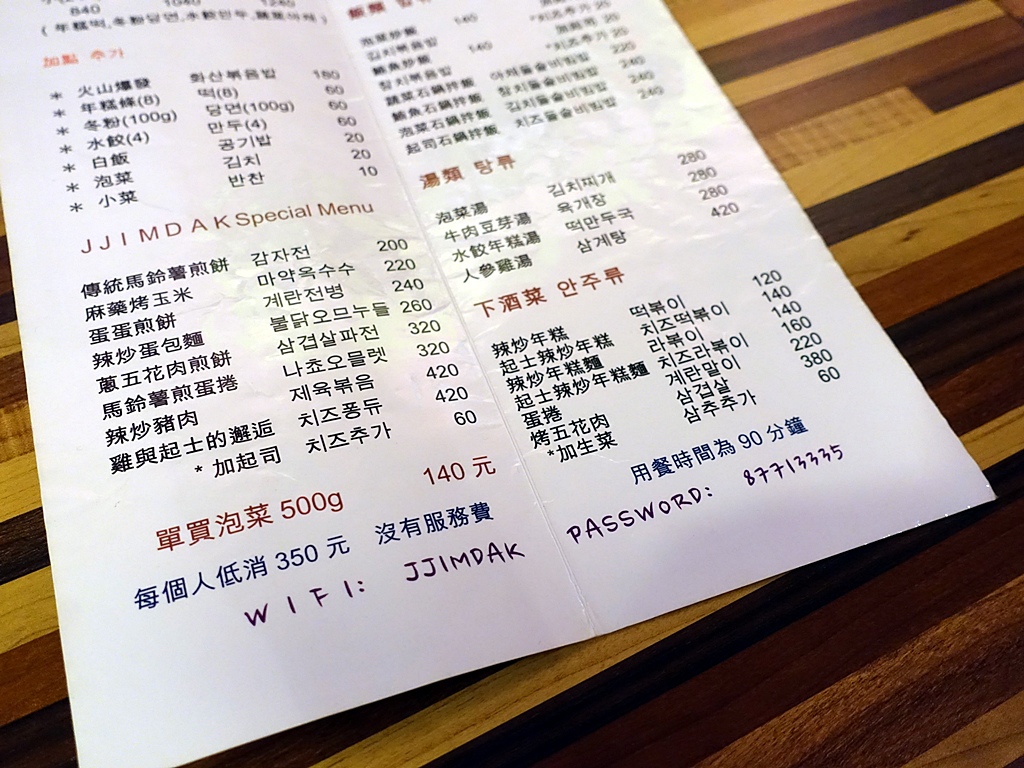 840 1040 1240
(年糕떡,冬粉당면,水餃만두,蔬菜야채)
加點 추가
* 火山爆發 화산볶음밥 180
* 年糕條(8) 떡(8) 60
* 冬粉(100g) 당면(100g) 60
* 水餃(4) 만두(4) 60
* 白飯 공기밥 20
* 泡菜 김치 20
* 小菜 반찬 10
JJIMDAK Special Menu
傳統馬鈴薯煎餅 감자전 200
麻藥烤玉米 마약옥수수 220
蛋蛋煎餅 계란전병 240
辣炒蛋包麵 불닭오므누들 260
蔥五花肉煎餅 삼겹살파전 320
馬鈴薯煎蛋捲 나쵸오믈렛 320
辣炒豬肉 제육볶음 420
雞與起士的邂逅 치즈퐁듀 420
* 加起司 치즈추가 60
單買泡菜 500g 140 元
每個人低消 350 元 沒有服務費
WIFI: JJIMDAK
飯類
泡菜炒飯 140
김치볶음밥 *치즈추가 20
鮪魚炒飯 140
참치볶음밥 *치즈추가 20
蔬菜石鍋拌飯 야채돌솥비빔밥 220
鮪魚石鍋拌飯 참치돌솥비빔밥 240
泡菜石鍋拌飯 김치돌솥비빔밥 240
起司石鍋拌飯 치즈돌솥비빔밥 240
湯類 탕류
泡菜湯 김치찌개 280
牛肉豆芽湯 육개장 280
水餃年糕湯 떡만두국 280
人參雞湯 삼계탕 420
下酒菜 안주류
辣炒年糕 떡볶이 120
起士辣炒年糕 치즈떡볶이 140
辣炒年糕麵 라볶이 140
起士辣炒年糕麵 치즈라볶이 160
蛋捲 계란말이 220
烤五花肉 삼겹살 380
*加生菜 삼추추가 60
用餐時間為 90 分鐘
PASSWORD: 87713335